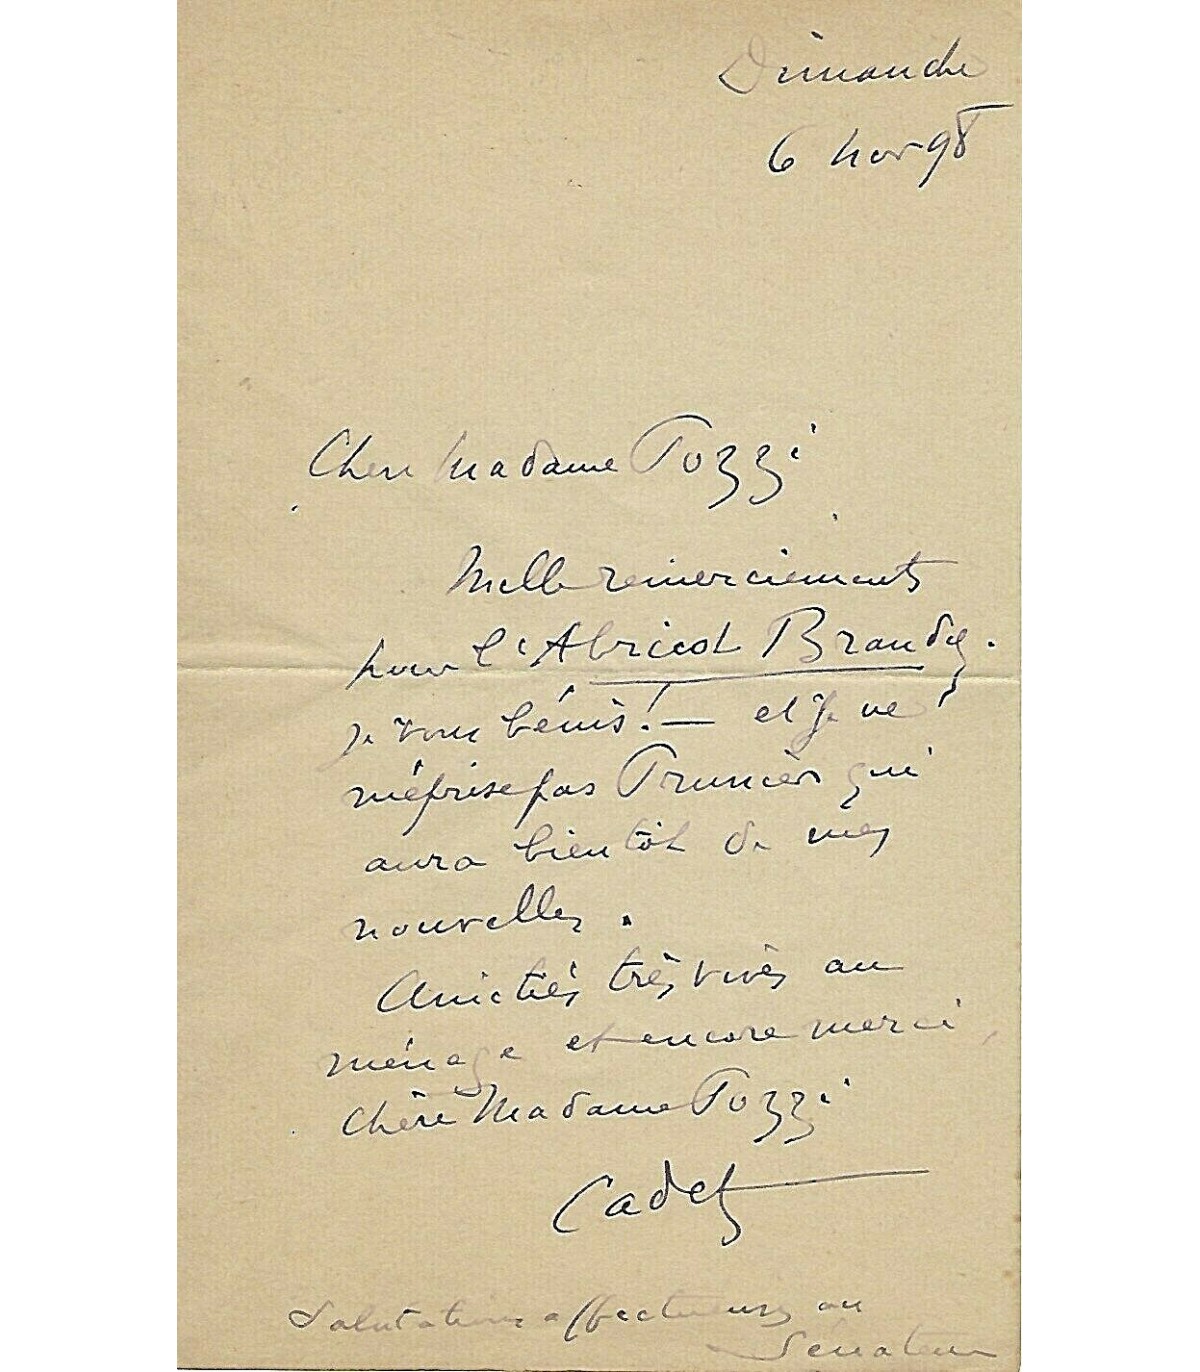 Dimanche
6 nov 98
Chère Madame Pozzi
Mille remerciements
pour l'Abricot Brandy.
je vous bénis! — et je ne
méprise pas Prunier qui
aura bientôt de mes
nouvelles.
Amitiés très vives au
ménage et encore merci,
Chère Madame Pozzi
Cadet
Salutations affectueuses au
Sénateur